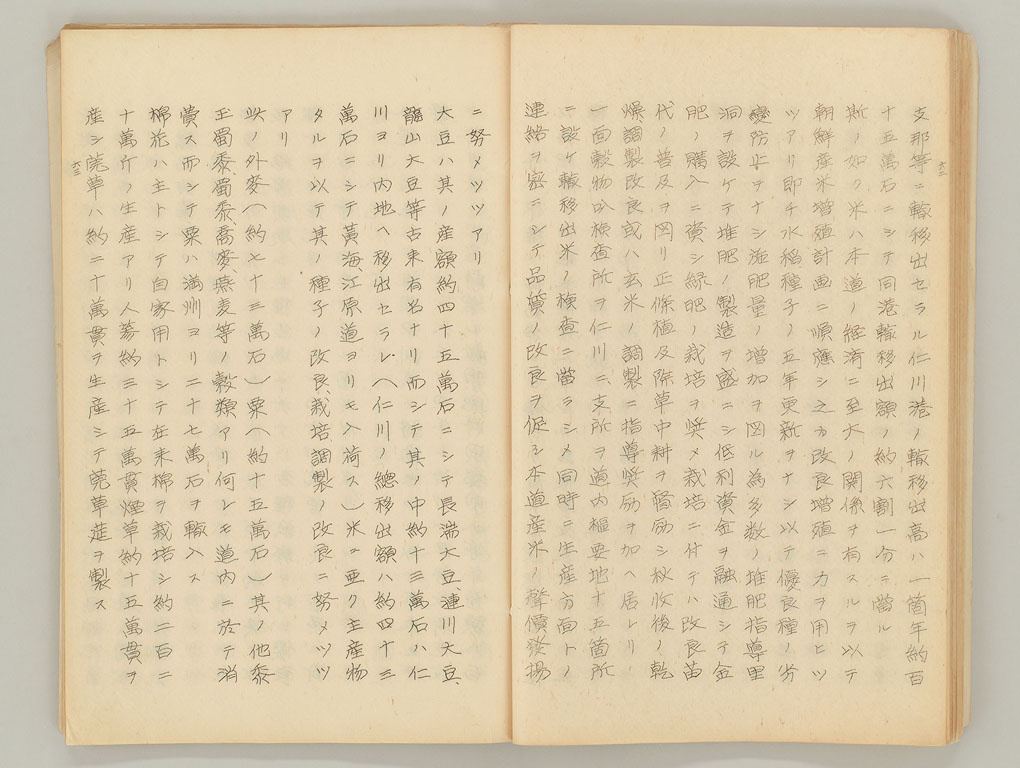 支那等ニ輸移出セラル仁川港ノ輸移出高ハ一箇年約百
十五萬石ニシテ同港輸移出額ノ約六割一分ニ當ル
斯ノ如ク米ハ本道ノ経済ニ至大ノ関係ヲ有スルヲ以テ
朝鮮産米増殖計画ニ順應シ之カ改良増殖ニ力ヲ用ヒツ
ツアリ即チ水稲種子ノ五年更新ヲナシ以テ優良種ノ劣
變防止ヲナシ施肥量ノ増加ヲ図ル為多数ノ堆肥指導里
洞ヲ設ケテ堆肥ノ製造ヲ盛ニシ低利資金ヲ融通シテ金
肥ノ購入ニ資シ緑肥ノ栽培ヲ奨メ栽培ニ付テハ改良苗
代ノ普及ヲ図リ正條植及除草中耕ヲ督励シ秋收後ノ乾
燥調製改良或ハ玄米ノ調製ニ指導奨励ヲ加ヘ居レリ
一面穀物検査所ヲ仁川ニ、支所ヲ道内枢要地十五箇所
ニ設ケ輸移出米ノ検査ニ當ラシメ同時ニ生産方面トノ
連絡ヲ密ニシテ品質ノ改良ヲ促シ本道産米ノ聲價發揚
ニ努メツツアリ
大豆ハ其ノ産額約四十五萬石ニシテ長湍大豆漣川大豆、
龍山大豆等古来有名ナリ而シテ其ノ中約十三萬石ハ仁
川ヨリ内地ヘ移出セラレ(仁川ノ總移出額ハ約四十三
萬石ニシテ黄海江原道ヨリモ入荷ス)米ニ亜ク主産物
タルヲ以テ其ノ種子ノ改良栽培調製ノ改良ニ努メツツ
アリ
此ノ外麥(約七十三萬石)粟(約十五萬石)其ノ他黍
玉蜀黍、蜀黍、喬麥、燕麦等ノ穀類アリ何レモ道内ニ於テ消
費ス而シテ粟ハ満洲ヨリ二十七萬石ヲ輸入ス
棉花ハ主トシテ自家用トシテ在来棉ヲ栽培シ約二百二
十萬斤ノ生産アリ人蔘約三十五萬貫煙草約十五萬貫ヲ
産シ莞草ハ約二十萬貫ヲ生産シテ莞草莚ヲ製ス